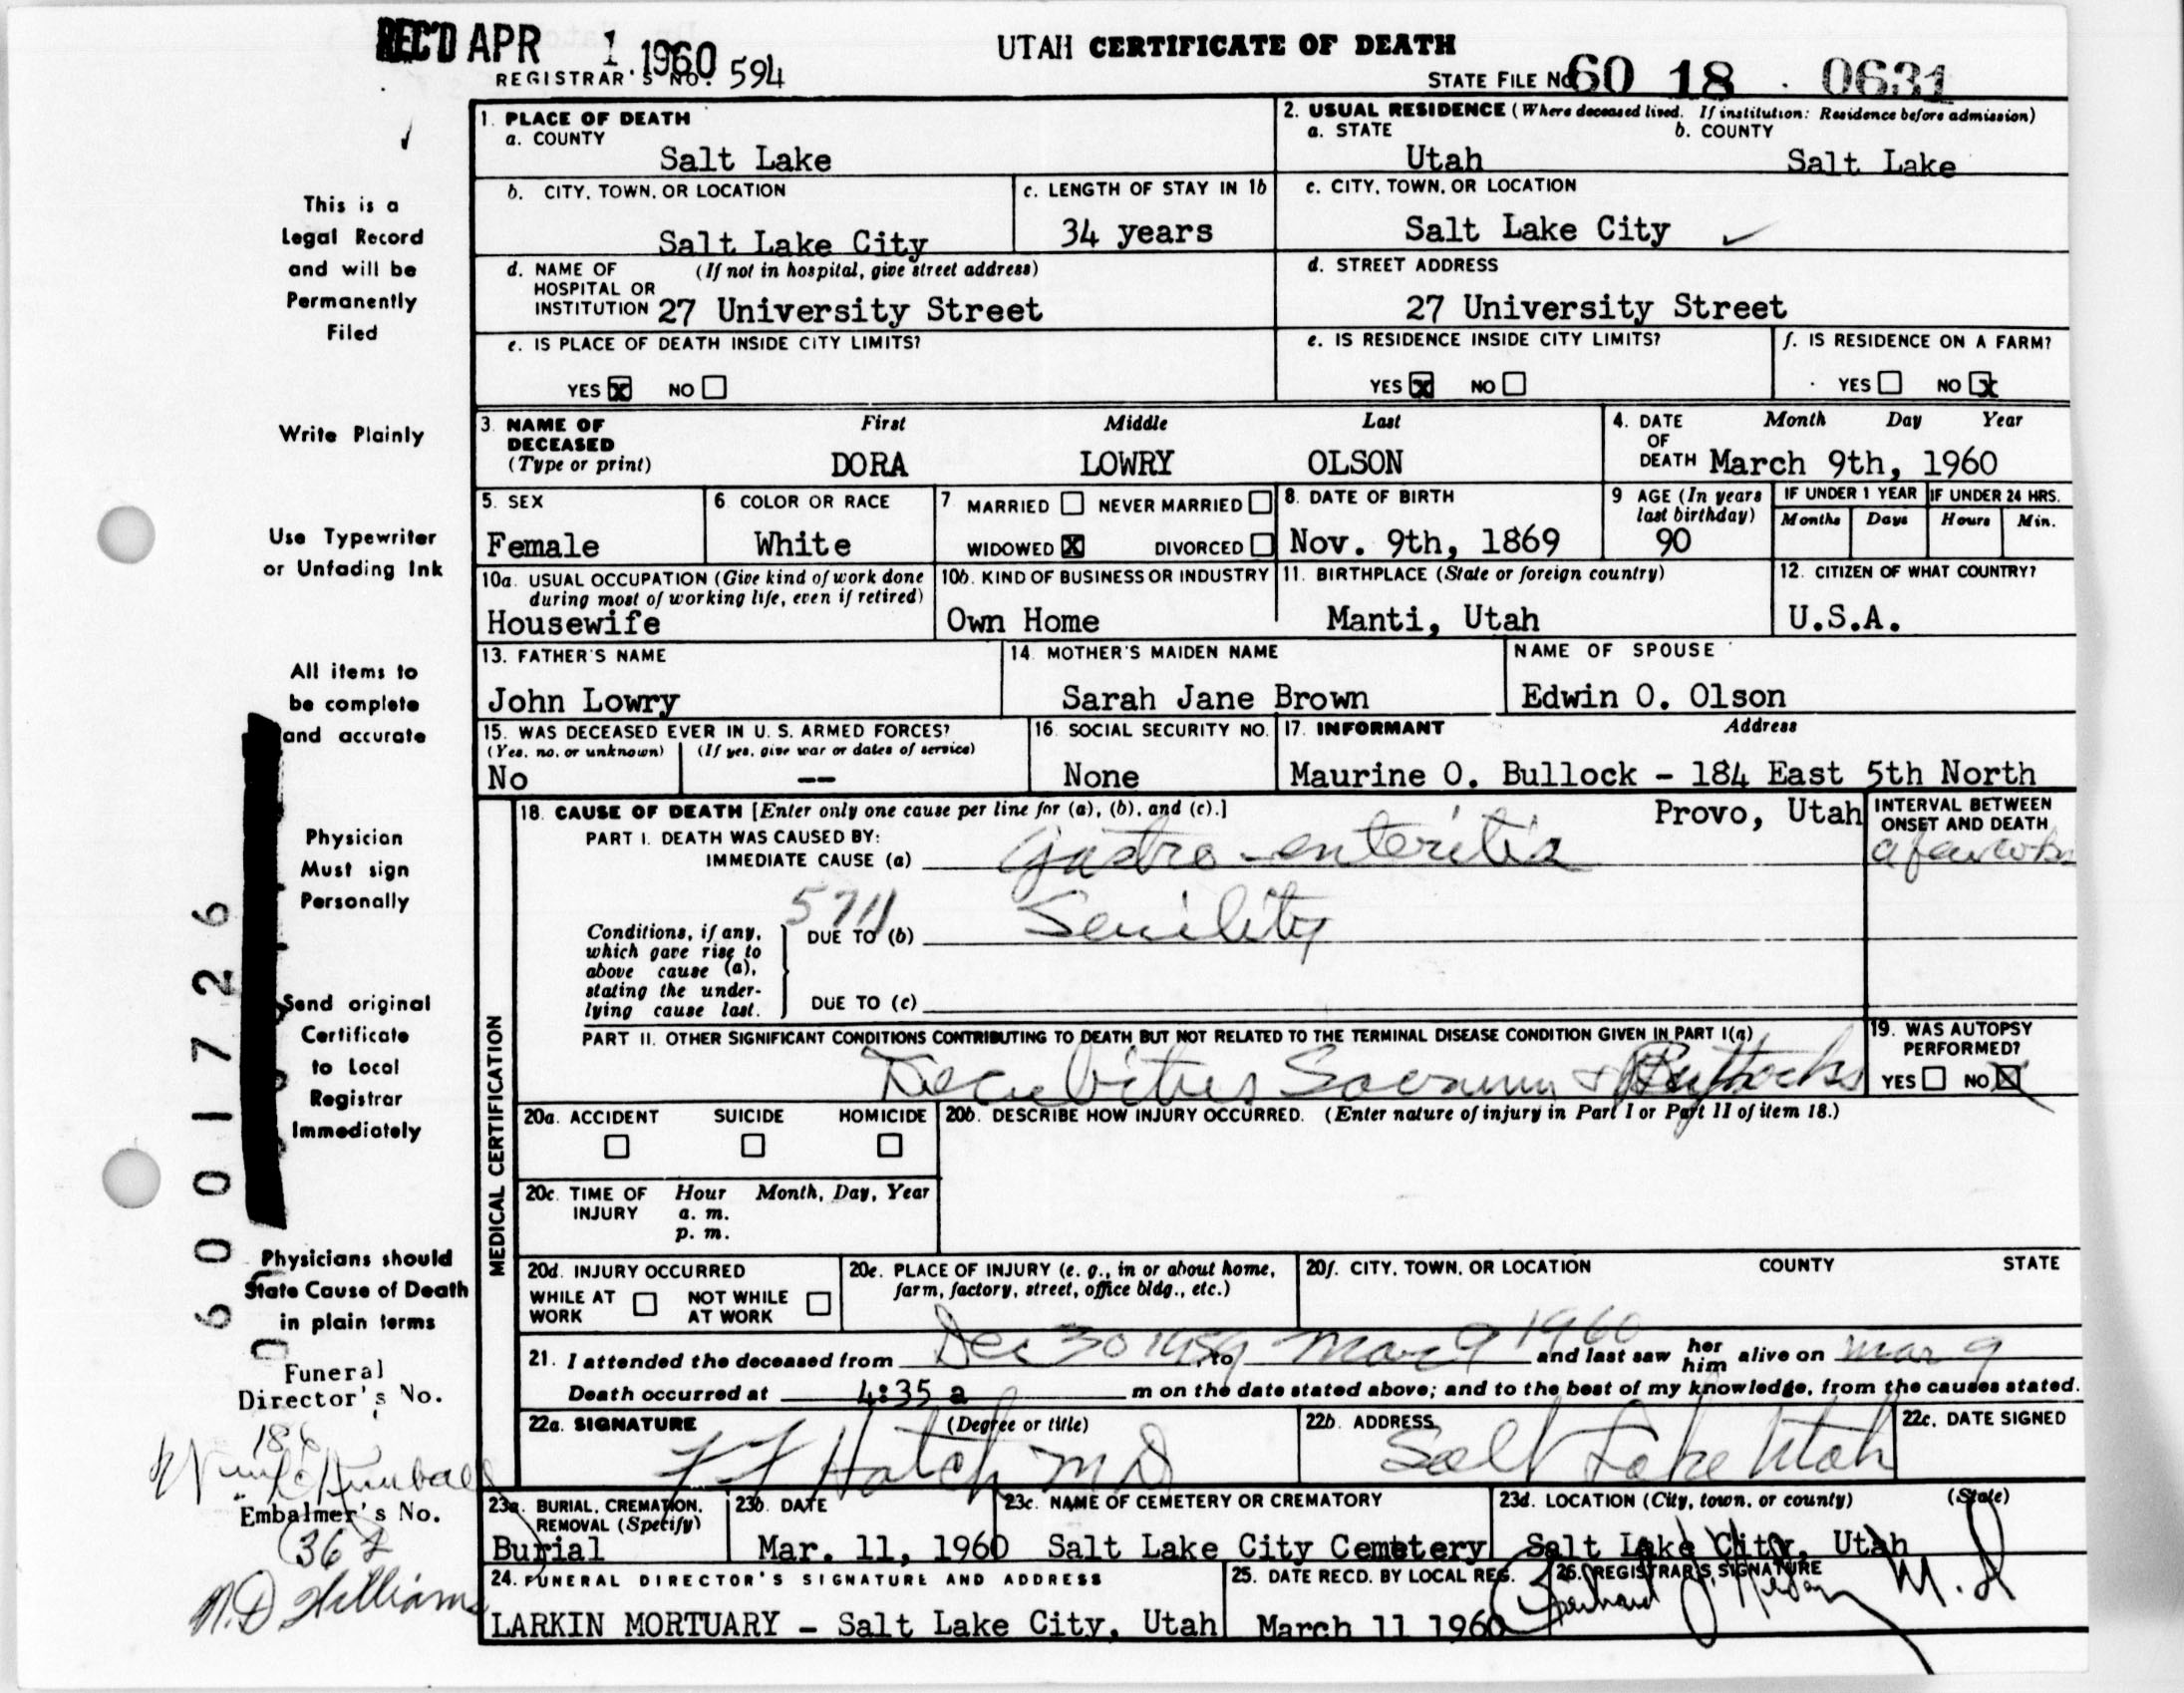 REC'D APR 1 1960
UTAH CERTIFICATE OF DEATH
REGISTRAR'S NO. 594
STATE FILE NO. 60 18 0631
This is a
Legal Record
and will be
Permanently
Filed
Write Plainly
Use Typewriter
or Unfading Ink
All items to
be complete
and accurate
Physician
Must sign
Personally
Send original
Certificate
to Local
Registrar
Immediately
Physicians should
State Cause of Death
in plain terms
Funeral
Director's No.
186
Embalmer's No.
362
1. PLACE OF DEATH
a. COUNTY
Salt Lake
2. USUAL RESIDENCE (Where deceased lived. If institution: Residence before admission)
a. STATE b. COUNTY
Utah Salt Lake
b. CITY, TOWN, OR LOCATION
Salt Lake City
c. LENGTH OF STAY IN 1b
34 years
c. CITY, TOWN, OR LOCATION
Salt Lake City
d. NAME OF HOSPITAL OR INSTITUTION (If not in hospital, give street address)
27 University Street
d. STREET ADDRESS
27 University Street
e. IS PLACE OF DEATH INSIDE CITY LIMITS?
YES X NO
e. IS RESIDENCE INSIDE CITY LIMITS?
YES X NO
f. IS RESIDENCE ON A FARM?
YES NO X
3. NAME OF DECEASED (Type or print) First Middle Last
DORA LOWRY OLSON
4. DATE OF DEATH Month Day Year
March 9th, 1960
5. SEX
Female
6. COLOR OR RACE
White
7. MARRIED NEVER MARRIED
WIDOWED X DIVORCED
8. DATE OF BIRTH
Nov. 9th, 1869
9 AGE (In years last birthday)
90
IF UNDER 1 YEAR IF UNDER 24 HRS.
Months Days Hours Min.
10a. USUAL OCCUPATION (Give kind of work done during most of working life, even if retired)
Housewife
10b. KIND OF BUSINESS OR INDUSTRY
Own Home
11. BIRTHPLACE (State or foreign country)
Manti, Utah
12. CITIZEN OF WHAT COUNTRY?
U.S.A.
13. FATHER'S NAME
John Lowry
14. MOTHER'S MAIDEN NAME
Sarah Jane Brown
NAME OF SPOUSE
Edwin O. Olson
15. WAS DECEASED EVER IN U. S. ARMED FORCES?
(Yes, no, or unknown) (If yes, give war or dates of service)
No --
16. SOCIAL SECURITY NO.
None
17. INFORMANT Address
Maurine O. Bullock - 184 East 5th North
Provo, Utah
MEDICAL CERTIFICATION
18. CAUSE OF DEATH [Enter only one cause per line for (a), (b), and (c).]
INTERVAL BETWEEN ONSET AND DEATH
PART I. DEATH WAS CAUSED BY:
IMMEDIATE CAUSE (a) Gastro-enteritis a few wks
5711
Conditions, if any, which gave rise to above cause (a), stating the underlying cause last.
DUE TO (b) Senility
DUE TO (c)
PART II. OTHER SIGNIFICANT CONDITIONS CONTRIBUTING TO DEATH BUT NOT RELATED TO THE TERMINAL DISEASE CONDITION GIVEN IN PART I(a)
Decubitus Sacrum & Buttocks
19. WAS AUTOPSY PERFORMED?
YES NO X
20a. ACCIDENT SUICIDE HOMICIDE
20b. DESCRIBE HOW INJURY OCCURRED. (Enter nature of injury in Part I or Part II of item 18.)
20c. TIME OF INJURY Hour Month, Day, Year
a. m.
p. m.
20d. INJURY OCCURRED
WHILE AT WORK NOT WHILE AT WORK
20e. PLACE OF INJURY (e. g., in or about home, farm, factory, street, office bldg., etc.)
20f. CITY, TOWN, OR LOCATION COUNTY STATE
21. I attended the deceased from Dec 30 1959, to Mar 9 1960 and last saw her him alive on Mar 9
Death occurred at 4:35 a m on the date stated above; and to the best of my knowledge, from the causes stated.
22a. SIGNATURE (Degree or title)
F F Hatch M D
22b. ADDRESS
Salt Lake Utah
22c. DATE SIGNED
23a. BURIAL, CREMATION, REMOVAL (Specify)
Burial
23b. DATE
Mar. 11, 1960
23c. NAME OF CEMETERY OR CREMATORY
Salt Lake City Cemetery
23d. LOCATION (City, town, or county) (State)
Salt Lake City, Utah
24. FUNERAL DIRECTOR'S SIGNATURE AND ADDRESS
LARKIN MORTUARY - Salt Lake City, Utah
25. DATE RECD. BY LOCAL REG.
March 11 1960
26. REGISTRAR'S SIGNATURE
M.D
6001726